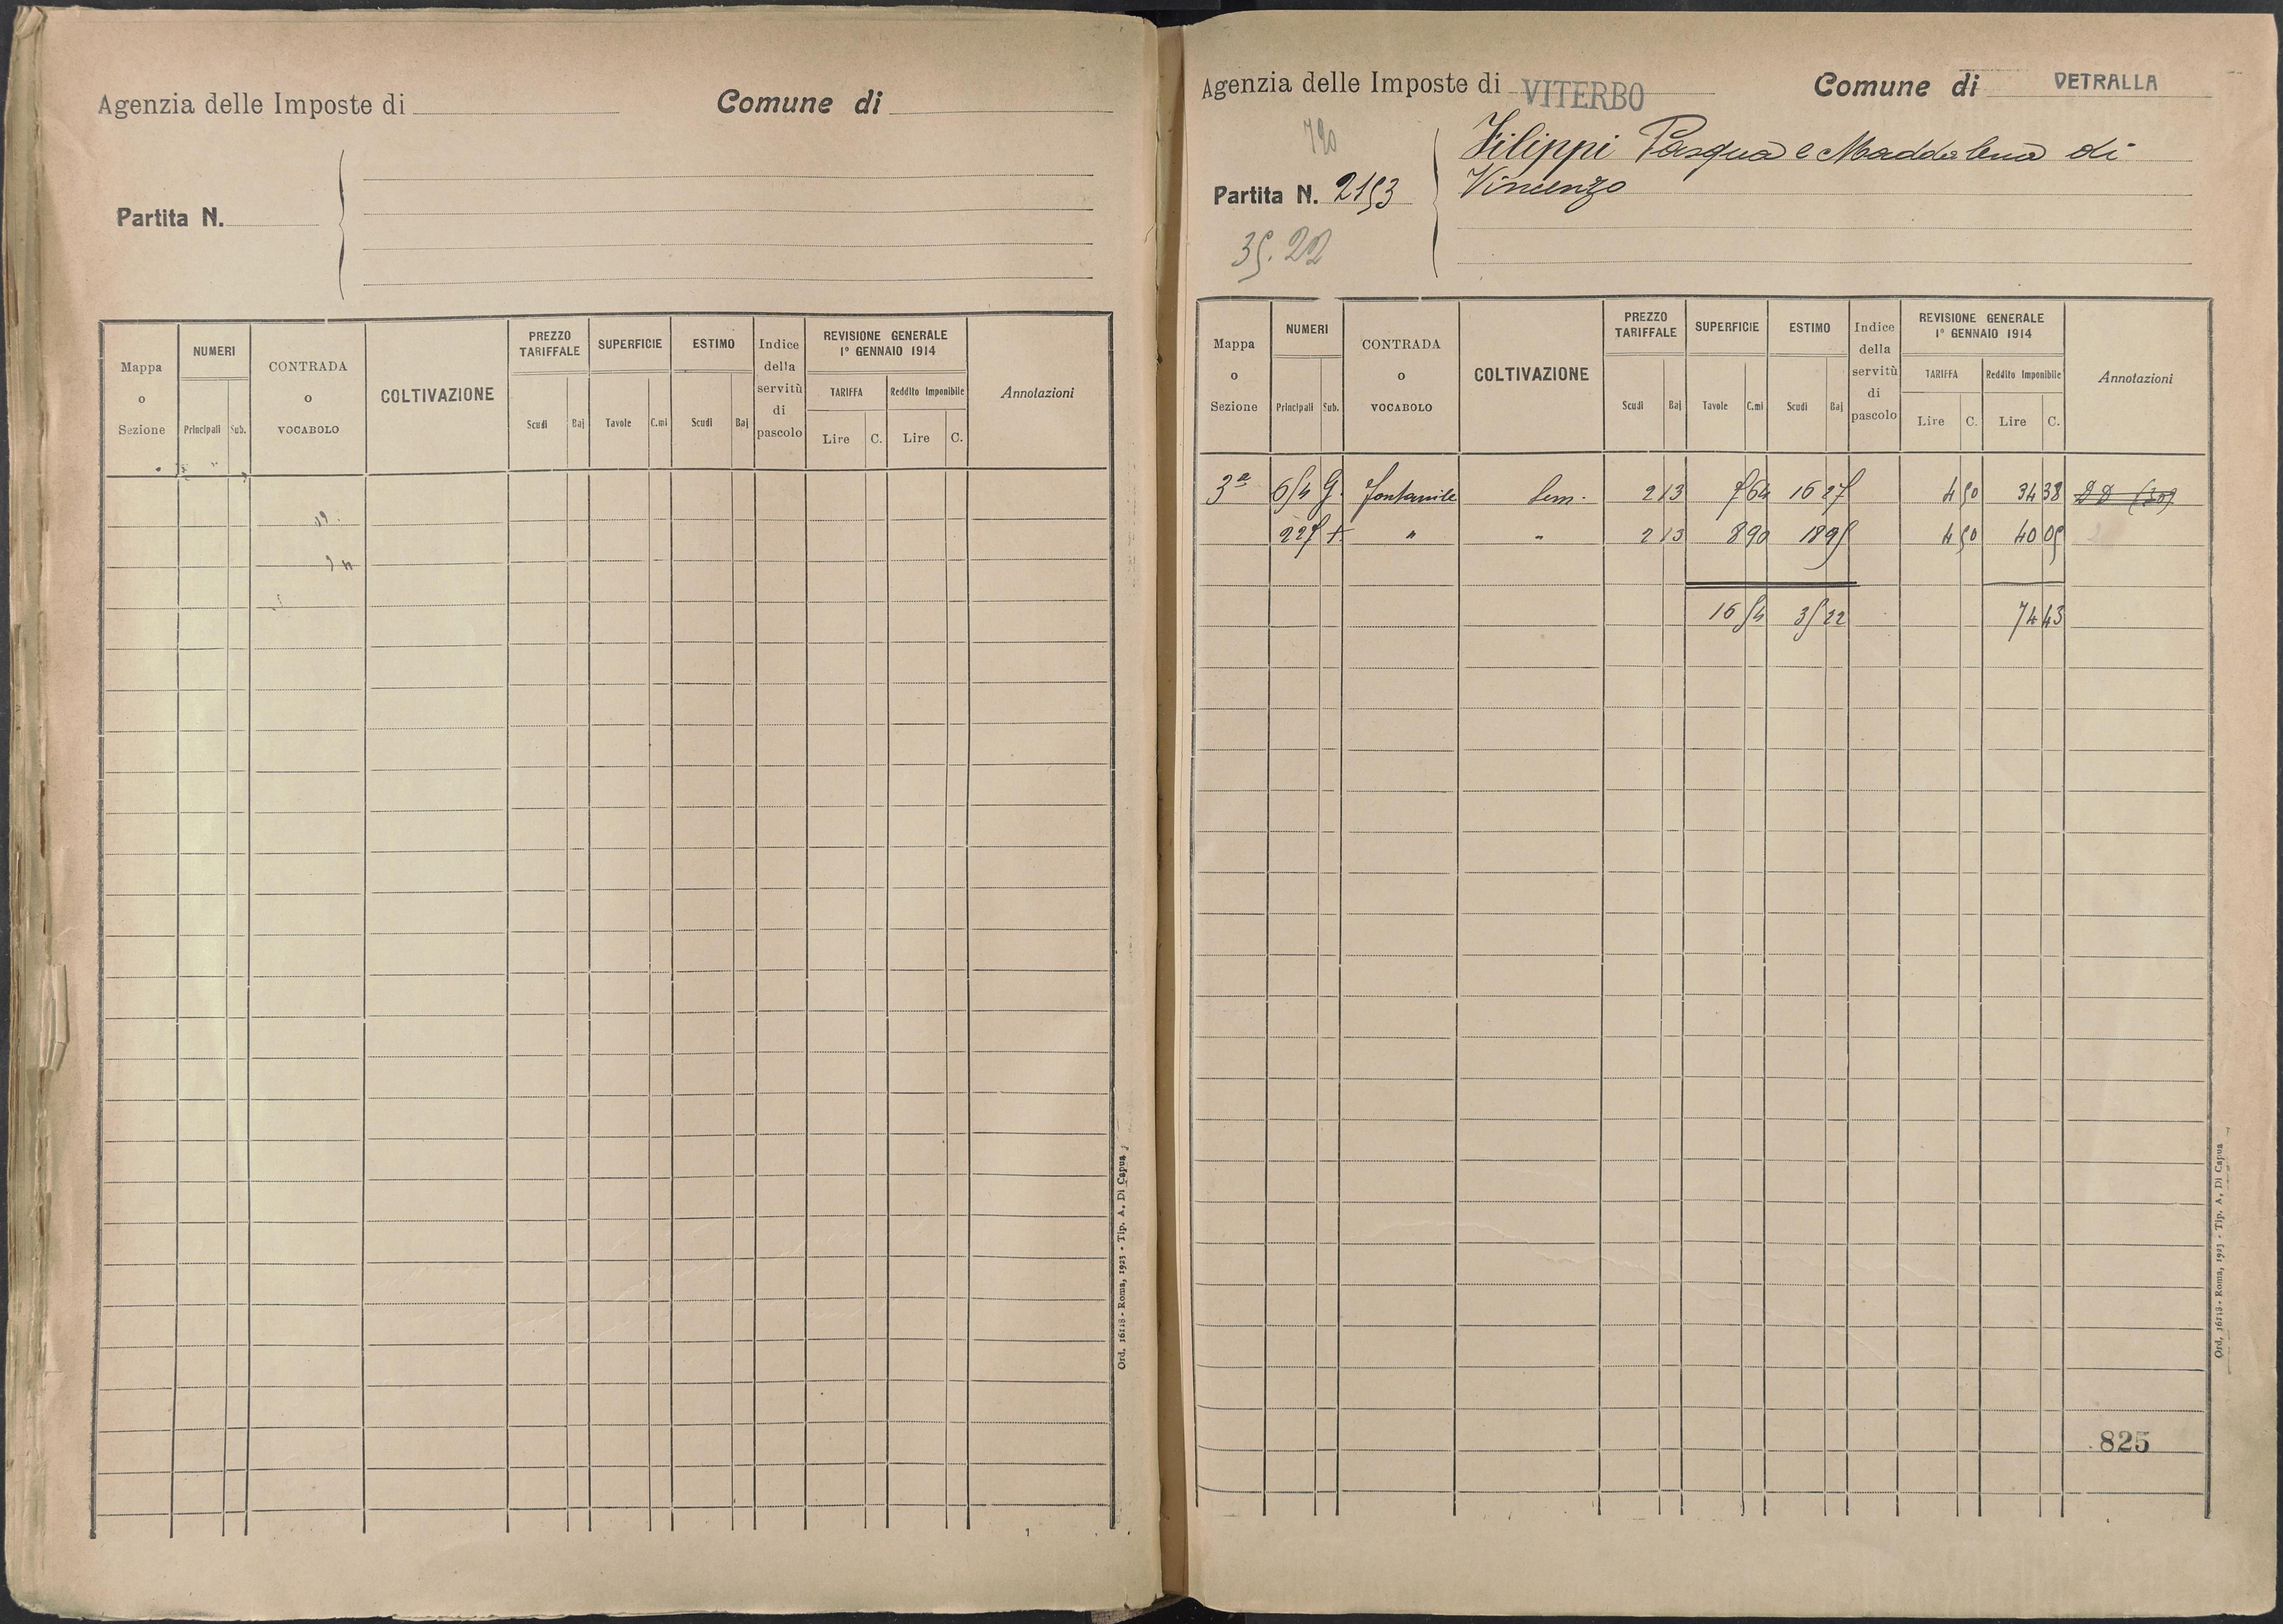 Agenzia delle Imposte di
Comune di
Partita N.
Mappa o Sezione
NUMERI
Principali Sub.
CONTRADA o VOCABOLO
COLTIVAZIONE
PREZZO TARIFFALE
Scudi Baj
SUPERFICIE
Tavole C.mi
ESTIMO
Scudi Baj
Indice della servitù di pascolo
REVISIONE GENERALE
1º GENNAIO 1914
TARIFFA
Lire C.
Reddito Imponibile
Lire C.
Annotazioni
Ord. 16118 - Roma, 1923 - Tip. A. Di Capua
Agenzia delle Imposte di VITERBO
Comune di VETRALLA
790
Partita N. 2153
35.22
Filippi Pasqua e Maddalena di
Vincenzo
Mappa o Sezione
NUMERI
Principali Sub.
CONTRADA o VOCABOLO
COLTIVAZIONE
PREZZO TARIFFALE
Scudi Baj
SUPERFICIE
Tavole C.mi
ESTIMO
Scudi Baj
Indice della servitù di pascolo
REVISIONE GENERALE
1º GENNAIO 1914
TARIFFA
Lire C.
Reddito Imponibile
Lire C.
Annotazioni
3ª 654 Fontanile Sem. 2 13 7 64 16 27 4 50 34 38
227 " " 2 13 8 90 18 95 4 50 40 05
16 54 35 22 74 43
825
Ord. 16118 - Roma, 1923 - Tip. A. Di Capua